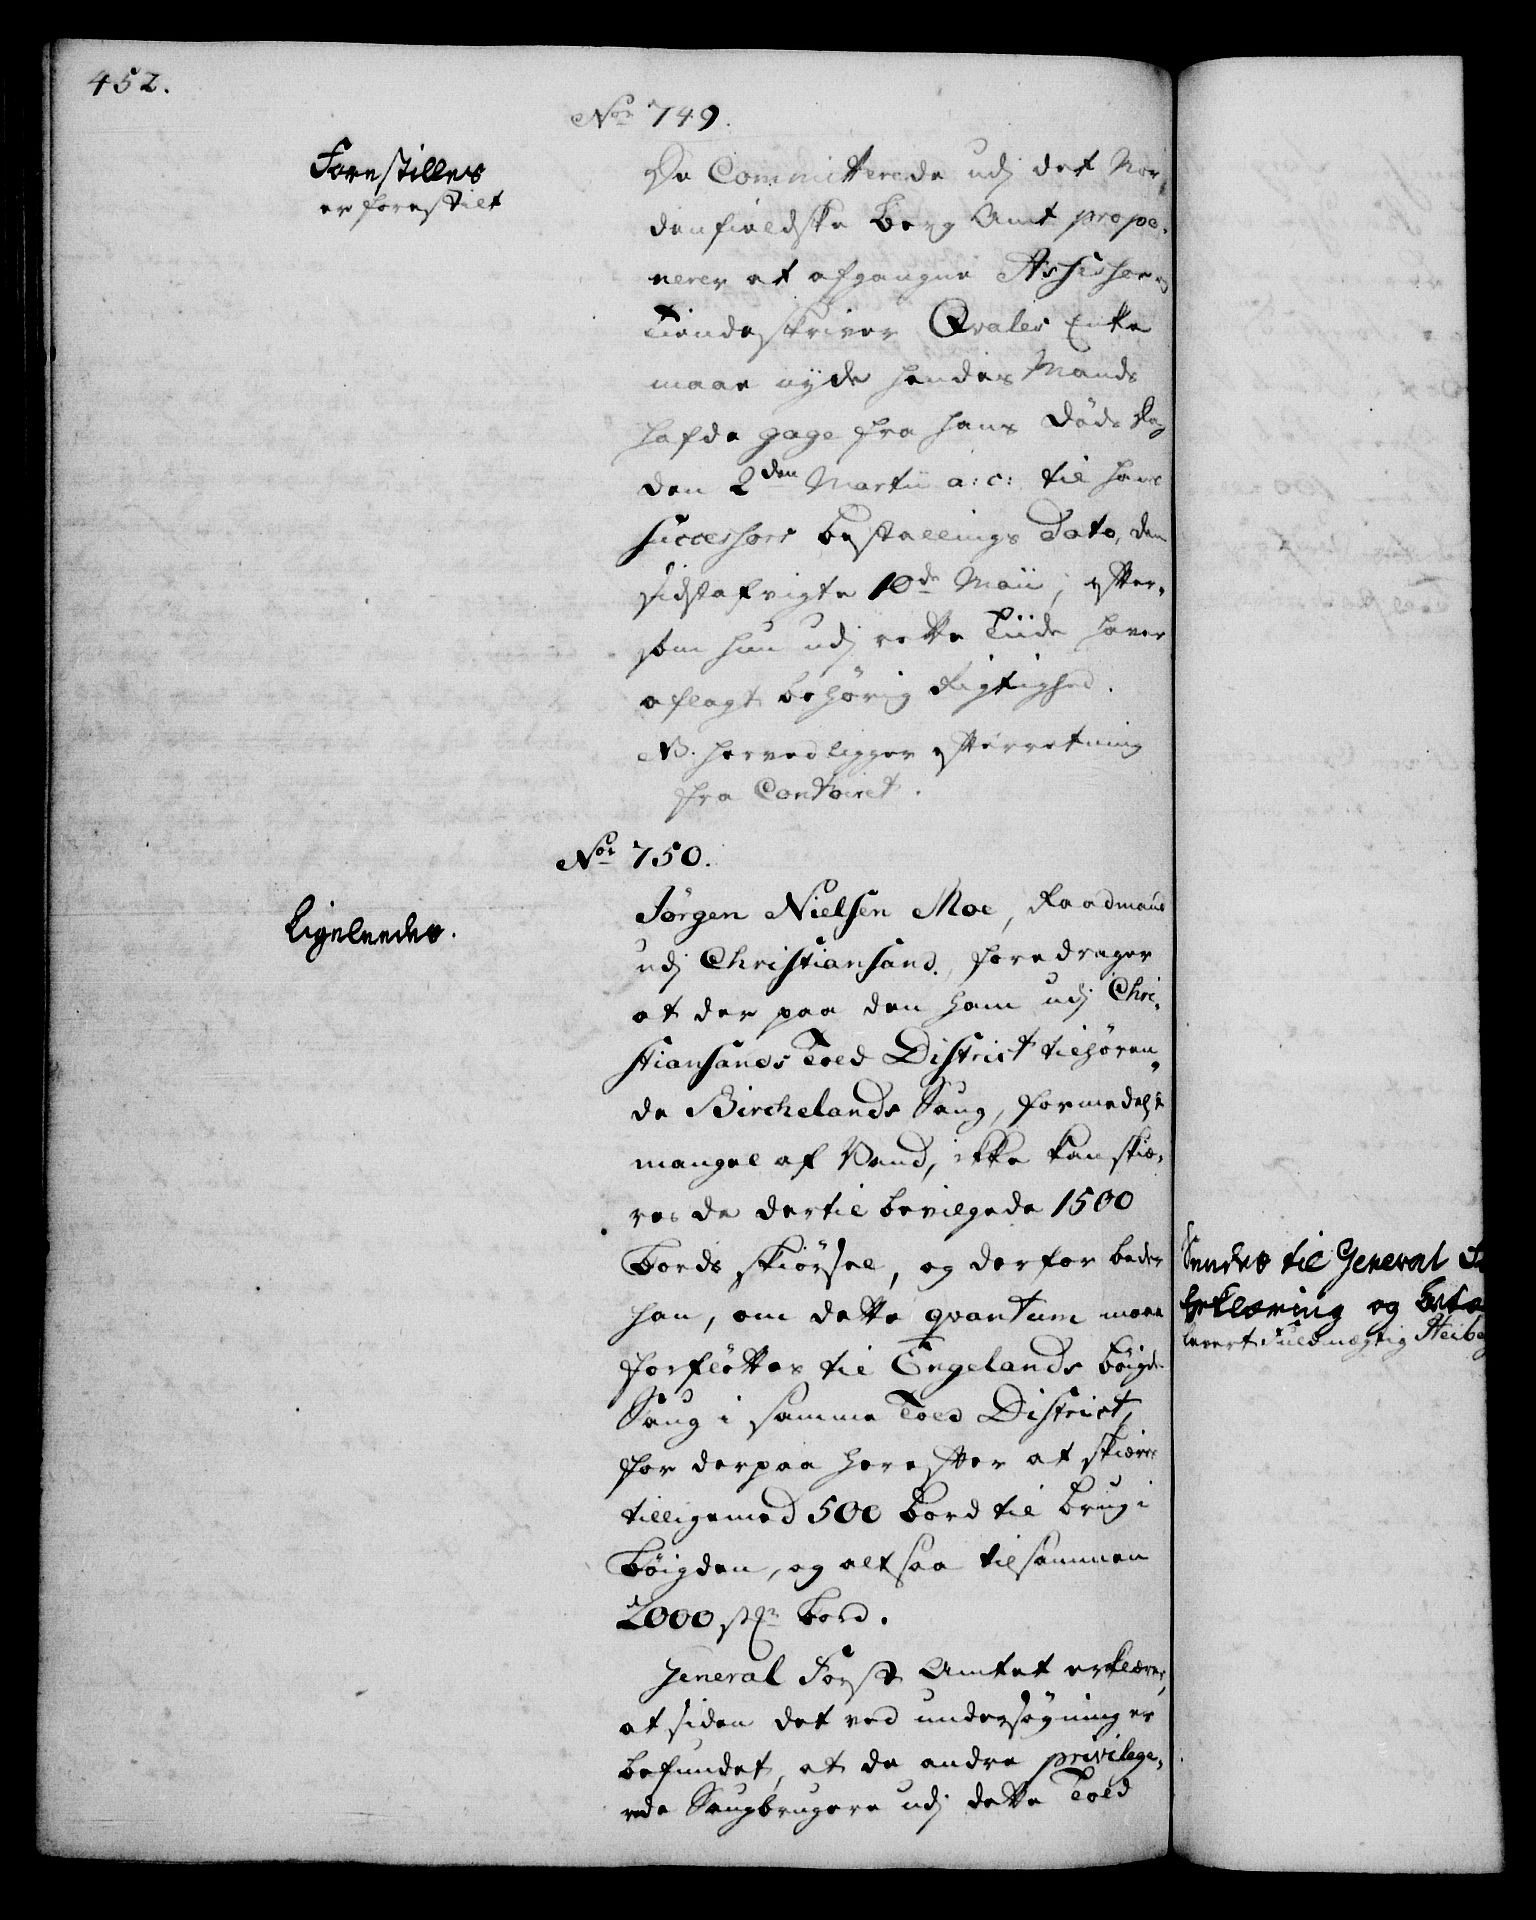 452.
No 749.
Forestilles
er forestilt
De Committerede udj det Nor,
denfieldske Berg Amt propo,
nerer at afgangne Assessor og
Tiendeskriver Qvales Enke
maae nyde hendes Mands
hafde gage fra hans Døds Dag
den 2den Martii a: c: til hans
Successors bestallings Dato, den
sidstafvigte 10de Maii, efter,
som hun udj rette Tiide haver
aflagt behørig Rigtighed.
NB. herved ligger efterretning
fra Contoiret.
No 750.
Ligeleedes.
Jørgen Nielsen Moe, Raadmand
udj Christiansand, foredrager
at der paa den ham udj Chri,
stiansands Told District tilhøren,
de Birchelands Saug, formedelst
mangel af Vand, ikke kan skiæ,
res de dertil bevilgede 1500
Bords skiørsel, og derfor beder
han, om dette qvantum maae
forfløttes til Engelands bøigde
Saug i samme Told District,
for derpaa herefter at skiæres
tilligemed 500 Bord til brug i
Bøigden, og altsaa tilsammen
2000 stkr Bord.
General Forst Amtet erklærer,
at siden det ved undersøgning er
befundet, at de andre privilege,
rede Saugbrugere udj dette Told
Sendes til General
Erklæring og
levert Fuldmægtig Heibe